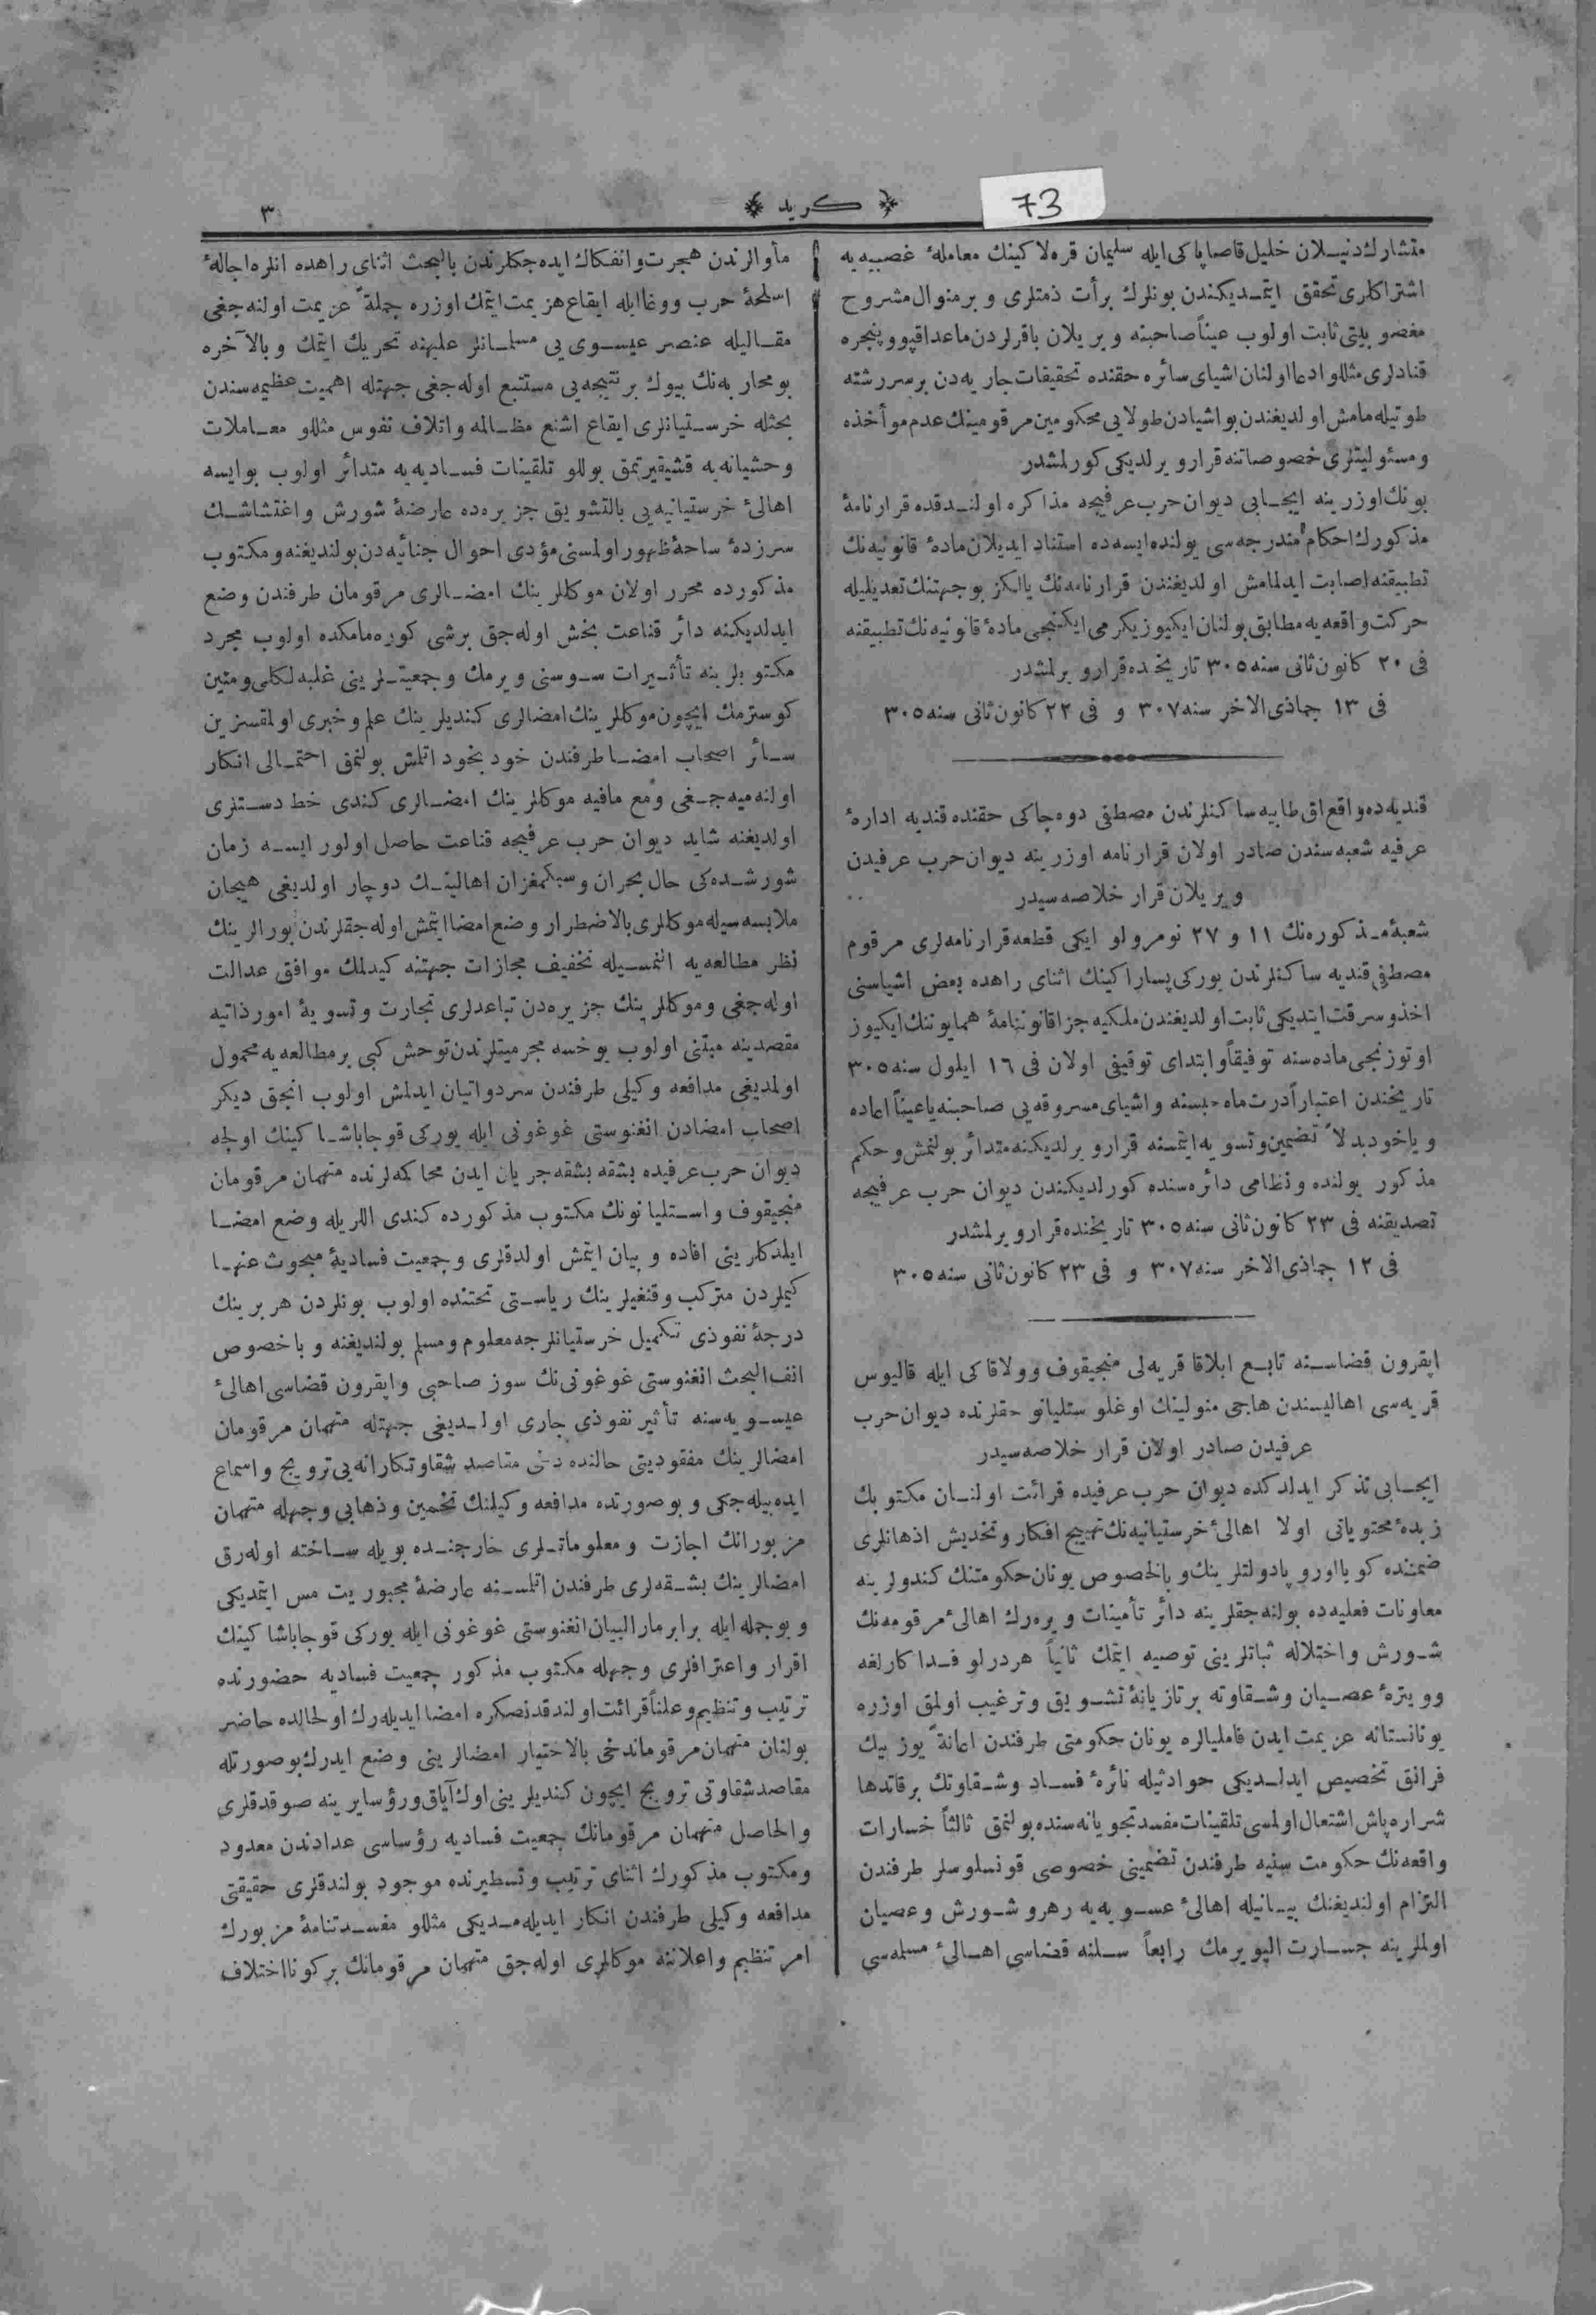 73
﴿ كريد ﴾
٣
متشارك دنيلان خليل قاصاپاكى ايله سليمان قره‌لاكينك معاملهٔ غصبيه‌يه
اشتراكلرى تحقق ايتمديكندن بونلرك برأت ذمتلرى و برمنوال مشروح
مغضوبيتى ثابت اولوب عيناً صاحبنه ويريلان باقرلردن ماعدا قپو و پنجره
قنادلرى مثللو ادعا اولنان اشياى سائره حقنده تحقيقات جاريه‌دن بر سررشته
طوتيله‌مامش اولديغندن بو اشيادن طولايى محكومين مرقومينك عدم مو أخذه
ومسئوليتلرى خصوصاتنه قرار ويرلديكى كورلمشدر
بونك اوزرينه ايجابى ديوان حرب عرفيجه مذاكره اولندقده قرارنامهٔ
مذكورك احكام مندرجه‌سى يولنده ايسه‌ده استناد ايديلان مادهٔ قانونيه‌نك
تطبيقنه اصابت ايدلمامش اولديغندن قرارنامه‌نك يالكز بوجهتنك تعديليله
حركت واقعه‌يه مطابق بولنان ايكيوز يكرمى ايكنجى مادهٔ قانونيه‌نك تطبيقنه
فى ٢٠ كانون ثانى سنه ٣٠٥ تاريخنده قرار ويرلمشدر
فى ١٣ جماذى الاخر سنه ٣٠٧ و فى ٢٢ كانون ثانى سنه ٣٠٥
قنديه‌ده واقع اق طابيه ساكنلرندن مصطفى دوه‌جاكى حقنده قنديه ادارهٔ
عرفيه شعبه سندن صادر اولان قرارنامه اوزرينه ديوان حرب عرفيدن
ويريلان قرار خلاصه سيدر
شعبهٔ مذكوره‌نك ١١ و ٢٧ نومرولو ايكى قطعه قرارنامه‌لرى مرقوم
مصطفى قنديه ساكنلرندن يوركى پساراكينك اثناى راهده بعض اشياسنى
اخذ و سرقت ايتديكى ثابت اولديغندن ملكيه جزا قانوننامهٔ همايوننك ايكيوز
اوتوزنجى ماده‌سنه توفيقاً و ابتداى توقيفى اولان فى ١٦ ايلول سنه ٣٠٥
تاريخندن اعتباراً درت ماه حبسنه و اشياى مسروقه‌يى صاحبنه يا عيناً اعاده
وياخود بدلاً تضمين و تسويه ايتمسنه قرار ويرلديكنه متدائر بولنمش و حكم
مذكور يولنده و نظامى دائره‌سنده كورلديكندن ديوان حرب عرفيجه
تصديقنه فى ٢٣ كانون ثانى سنه ٣٠٥ تاريخنده قرار ويرلمشدر
فى ١٢ جماذى الاخر سنه ٣٠٧ و فى ٢٣ كانون ثانى سنه ٣٠٥
اپقرون قضاسنه تابع ابلاقا قريه‌لى منجيقوف وولاقاكى ايله قاليوس
قريه‌سى اهاليسندن هاجى منولينك اوغلو ستليانو حقلرنده ديوان حرب
عرفيدن صادر اولان قرار خلاصه سيدر
ايجابى تذكر ايدلدكده ديوان حرب عرفيده قرائت اولنان مكتوبك
زبدهٔ محتوياتى اولا اهالىٔ خرستيانيه‌نك تهييج افكار و تخديش اذهانلرى
ضمننده كويا اوروپا دولتلرينك و بالخصوص يونان حكومتنك كندولرينه
معاونات فعليه‌ده بولنه‌جقلرينه دائر تأمينات ويره‌رك اهالىٔ مرقومه‌نك
شورش و اختلاله ثباتلرينى توصيه ايتمك ثانياً هردرلو فداكارلغه
و ويترهٔ عصيان و شقاوته بر تازيانهٔ تشويق و ترغيب اولمق اوزره
يونانستانه عزيمت ايدن فاميليالره يونان حكومتى طرفندن اعانةً يوز بيك
فرانق تخصيص ايدلديكى حوادثيله نائرهٔ فساد و شقاوتك برقاتدها
شراره پاش اشتعال اولمسى تلقينات مفسدتجويانه سنده بولنمق ثالثاً خسارات
واقعه‌نك حكومت سنيه طرفندن تضمينى خصوصى قونسلوسلر طرفندن
التزام اولنديغنك بيانيله اهالىٔ عسويه‌يه رهرو شورش و عصيان
اولملرينه جسارت الپويرمك رابعاً سلنه قضاسى اهالىٔ مسلمه‌سى
مأوالرندن هجرت و انفكاك ايده‌جكلرندن بالبحث اثناى راهده انلره اجالهٔ
اسلحهٔ حرب و وغا ايله ايقاع هزيمت ايتمك اوزره جملةً عزيمت اولنه‌جغى
مقاليله عنصر عيسوى يى مسلمانلر عليهنه تحريك ايتمك و بالآخره
بو محاربه‌نك بيوك بر نتيجه‌يى مستتبع اوله‌جغى جهتله اهميت عظيمه سندن
بحثله خرستيانلرى ايقاع اشنع مظالمه و اتلاف نفوس مثللو معاملات
وحشيانه‌يه قشيقيرتمق يوللو تلقينات فساديه‌يه متدائر اولوب بوايسه
اهالىٔ خرستيانيه‌يى بالتشويق جزيره‌ده عارضهٔ شورش و اغتشاشك
سرزدهٔ ساحهٔ ظهور اولمسنى مؤدى احوال جنائيه‌دن بولنديغنه و مكتوب
مذكورده محرر اولان موكللرينك امضالرى مرقومان طرفندن وضع
ايدلديكنه دائر قناعت بخش اوله‌جق برشى كوره‌مامكده اولوب مجرد
مكتوبلرينه تأثيرات سوسنى ويرمك و جمعيتلرينى غلبه لكلى و متين
كوسترمك ايچون موكللرينك امضالرى كنديلرينك علم و خبرى اولمقسزين
سائر اصحاب امضا طرفندن خود بخود اتلمش بولنمق احتمالى انكار
اولنه‌ميه‌جغى ومع مافيه موكللرينك امضالرى كندى خط دستلرى
اولديغنه شايد ديوان حرب عرفيجه قناعت حاصل اولور ايسه زمان
شورشده‌كى حال بحران و سبكمغزان اهالينك دوچار اولديغى هيجان
ملابسه سيله موكللرى بالاضطرار وضع امضا ايتمش اوله‌جقلرندن بورالرينك
نظر مطالعه‌يه النمسيله تخفيف مجازات جهتنه كيدلمك موافق عدالت
اوله‌جغى و موكللرينك جزيره‌دن تباعدلرى تجارت و تسويهٔ امور ذاتيه
مقصدينه مبتنى اولوب يوخسه مجرميتلرندن توحش كبى بر مطالعه‌يه محمول
اولمديغى مدافعه وكيلى طرفندن سرد و اتيان ايدلمش اولوب انجق ديكر
اصحاب امضادن انغنوستى غوغونى ايله يوركى قوجاباشاكينك اولجه
ديوان حرب عرفيده بشقه بشقه جريان ايدن محاكمه‌لرنده متهمان مرقومان
منجيقوف و استليانونك مكتوب مذكورده كندى اللريله وضع امضا
ايلدكلرينى افاده و بيان ايتمش اولدقلرى و جمعيت فساديهٔ مبحوث عنها
كيملردن متركب و قنغيلرينك رياستى تحتنده اولوب بونلردن هربرينك
درجهٔ نفوذى تكميل خرستيانلرجه معلوم و مسلم بولنديغنه و باخصوص
انف البحث انغنوستى غوغونى‌نك سوز صاحبى و اپقرون قضاسى اهالىٔ
عيسويه‌سنه تأثير نفوذى جارى اولديغى جهتله متهمان مرقومان
امضالرينك مفقوديتى حالنده دخى مقاصد شقاوتكارانه‌يى ترويج و اسماع
ايده‌بيله‌جكى و بو صورتده مدافعه وكيلنك تخمين و ذهابى وجهله متهمان
مزبورانك اجازت و معلوماتلرى خارجنده بويله ساخته اوله‌رق
امضالرينك بشقه‌لرى طرفندن اتلمسنه عارضهٔ مجبوريت مس ايتمديكى
و بوجمله ايله برابر مارالبيان انغنوستى غوغونى ايله يوركى قوجاباشاكينك
اقرار و اعترافلرى وجهله مكتوب مذكور جمعيت فساديه حضورنده
ترتيب و تنظيم و علناً قرائت اولندقدنصكره امضا ايديله‌رك اولحالده حاضر
بولنان متهمان مرقوماندخى بالاختيار امضالرينى وضع ايدرك بوصورتله
مقاصد شقاوتى ترويج ايچون كنديلرينى اوك آياق و رؤسا يرينه صوقدقلرى
والحاصل متهمان مرقومانك جمعيت فساديه رؤساسى عدادندن معدود
و مكتوب مذكورك اثناى ترتيب و تسطيرنده موجود بولندقلرى حقيقتى
مدافعه وكيلى طرفندن انكار ايديله‌مديكى مثللو مفسدتنامهٔ مزبورك
امر تنظيم و اعلاننه موكللرى اوله‌جق متهمان مرقومانك بركونا اختلاف